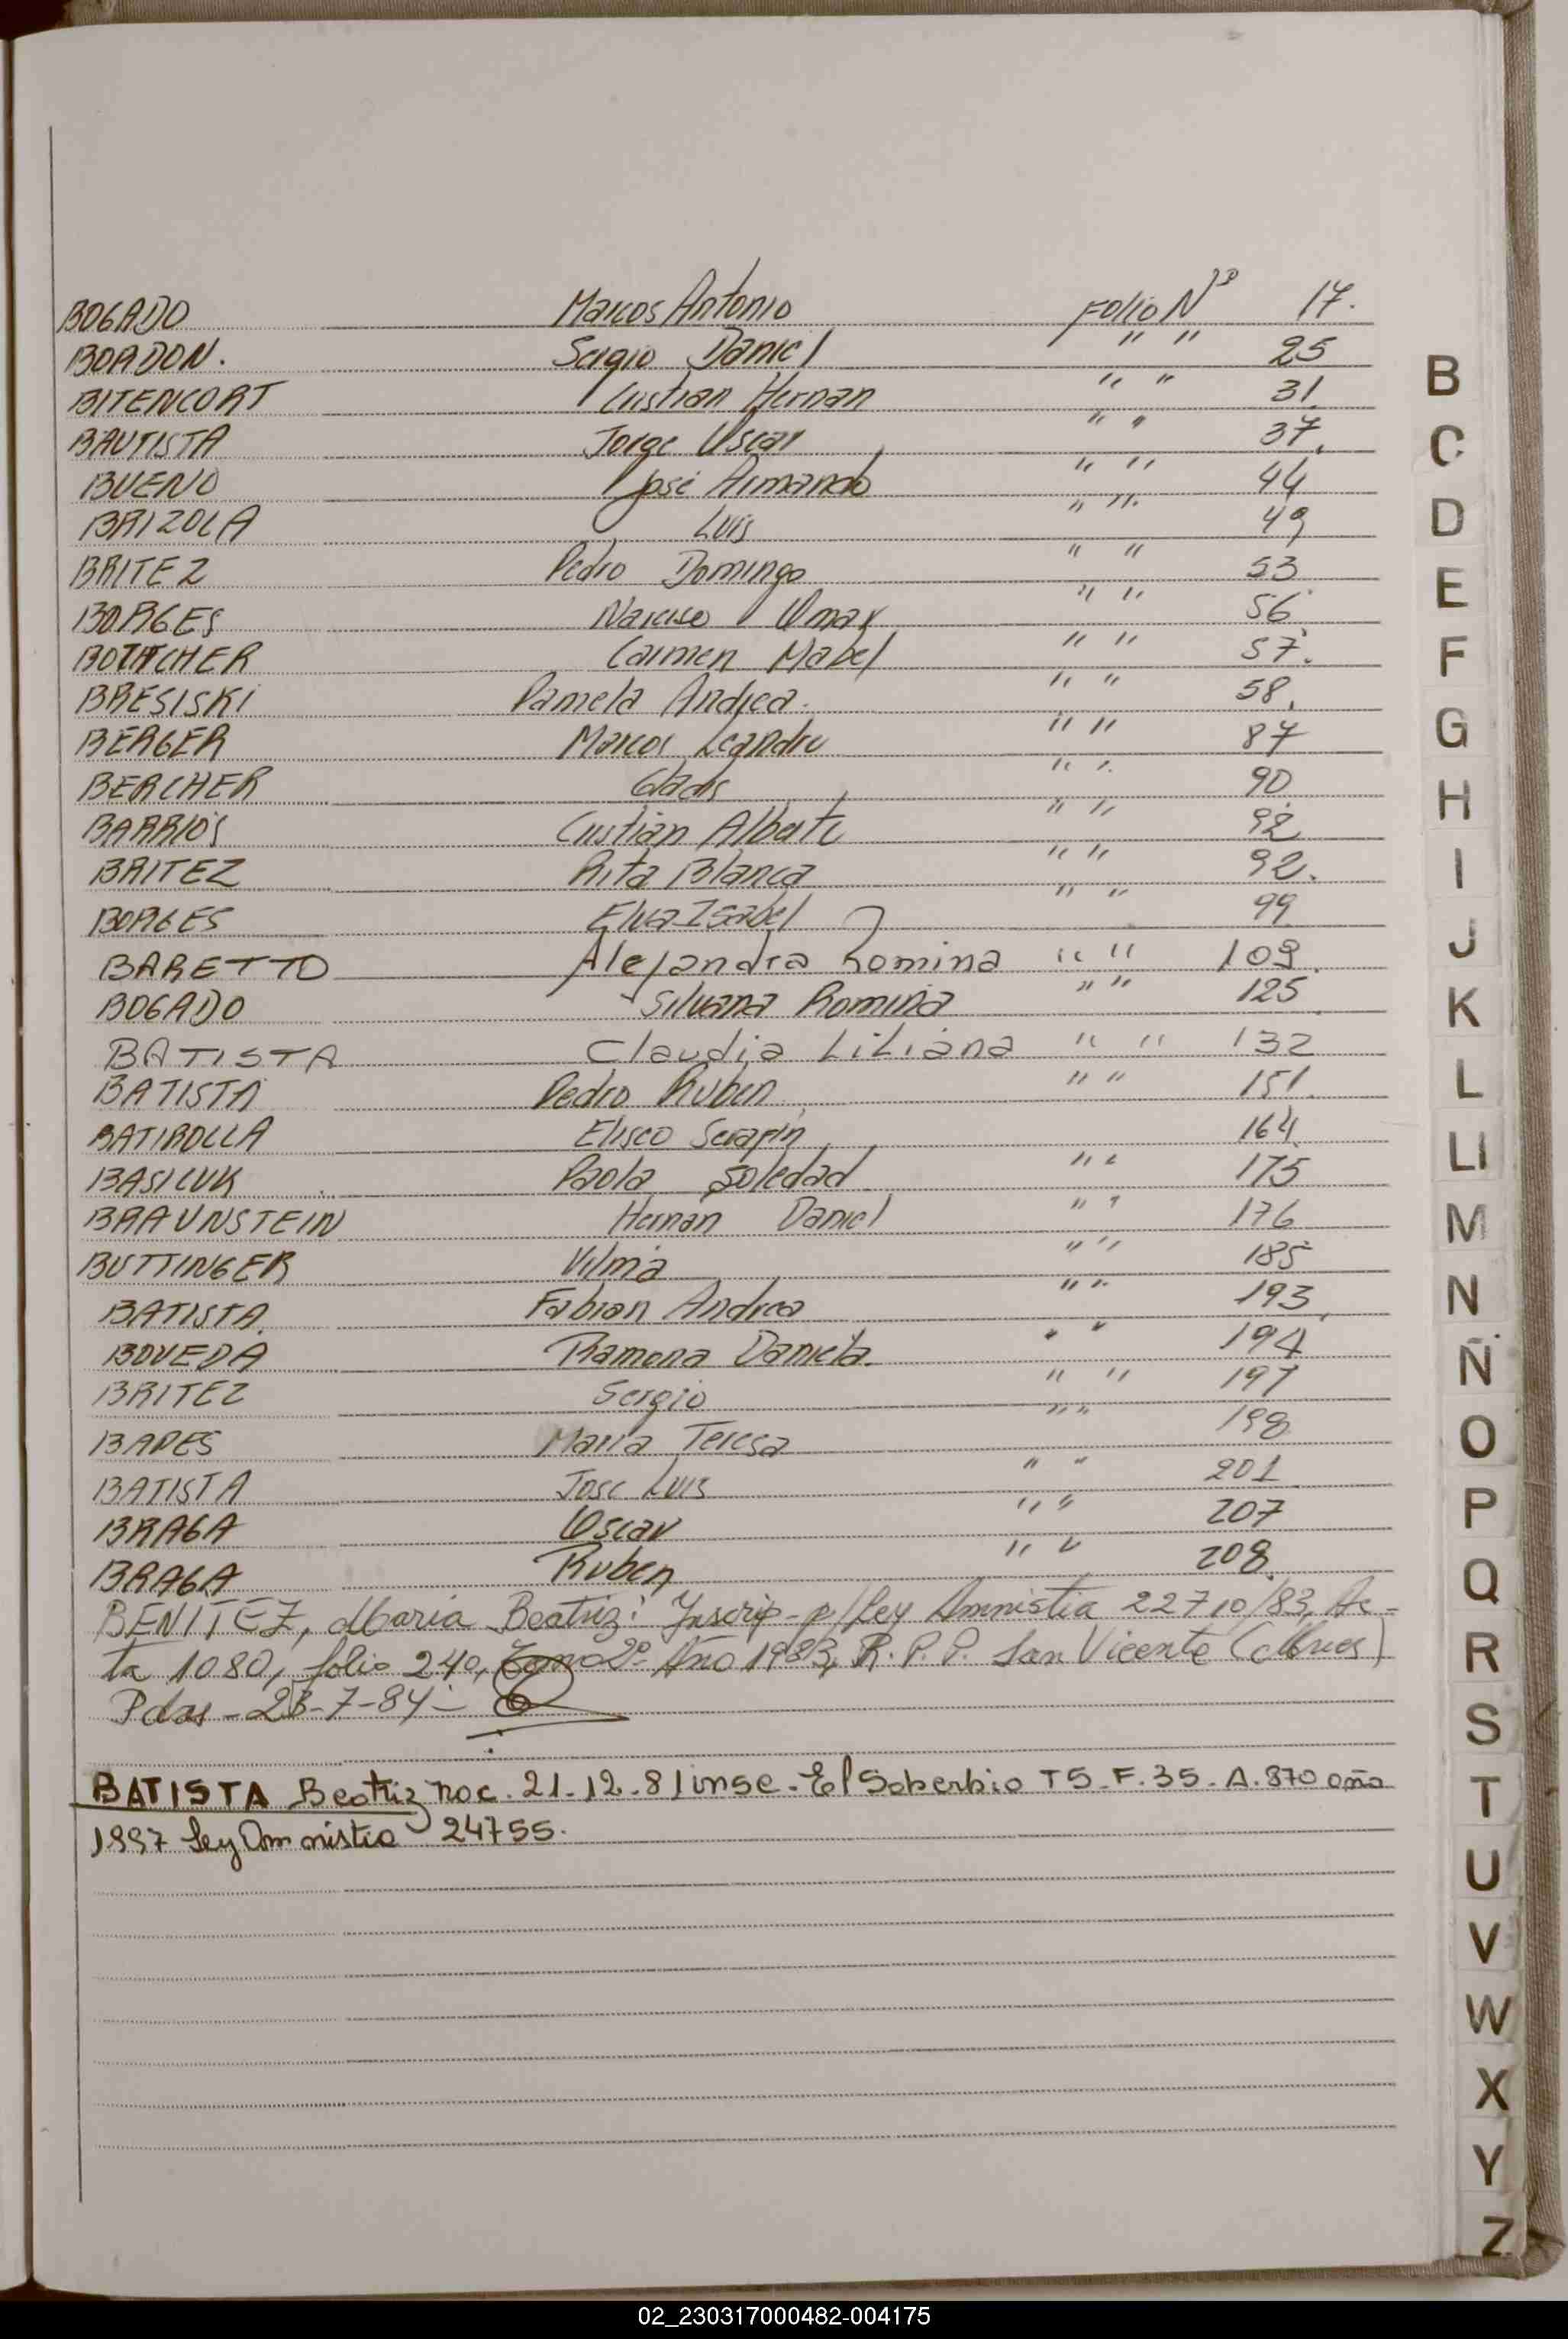 BOGADO Marcos Antonio Folio Nº 17.
BORDON. Sergio Daniel " " 25
BITENCORT Cristian Hernan " " 31.
BAUTISTA Jorge Oscar " " 37.
BUENO José Armando " " 44
BRIZOLA Luis " " 49
BRITEZ Pedro Domingo " " 53
BORGES Narciso Omar " " 56
BOTTCHER Carmen Mabel " " 57.
BRESISKI Pamela Andrea. " " 58.
BERGER Marcos Leandro " " 87
BERCHER Gladis " " 90
BARRIOS Cristian Alberto " " 92
BRITEZ Rita Blanca " " 92.
BORGES Elva Isabel " " 99
BARETTO Alejandra Romina " " 109.
BOGADO Silvana Romina " " 125
BATISTA Claudia Liliana " " 132
BATISTA Pedro Ruben " " 151.
BATIROLLA Eliseo Serapin 164.
BASILUK Paola Soledad " " 175
BRAUNSTEIN Hernan Daniel " " 176
BUTTINGER Vilma " " 185
BATISTA. Fabian Andrea " " 193.
BOVEDA Ramona Daniela. " " 194
BRITEZ Sergio " " 197
Maria Teresa " " 198
BATISTA Jose Luis " " 201
BRAGA Oscar " " 207
BRAGA Ruben " " 208.
BENITEZ, Maria Beatriz: Inscrip - p/ Ley Amnistia 22710/83, Ac-
ta 1080, folio 240, Tomo 2º Año 1983, R.P.P. San Vicente (Mnes)
Pdas - 23-7-84 -
BATISTA Beatriz nac. 21-12-81 insc. El Soberbio T5-F.35-A.870 año
1997 Ley Amnistia 24755.
B
C
D
E
F
G
H
I
J
K
L
Ll
M
N
Ñ
O
P
Q
R
S
T
U
V
W
X
Y
Z
02_230317000482-004175